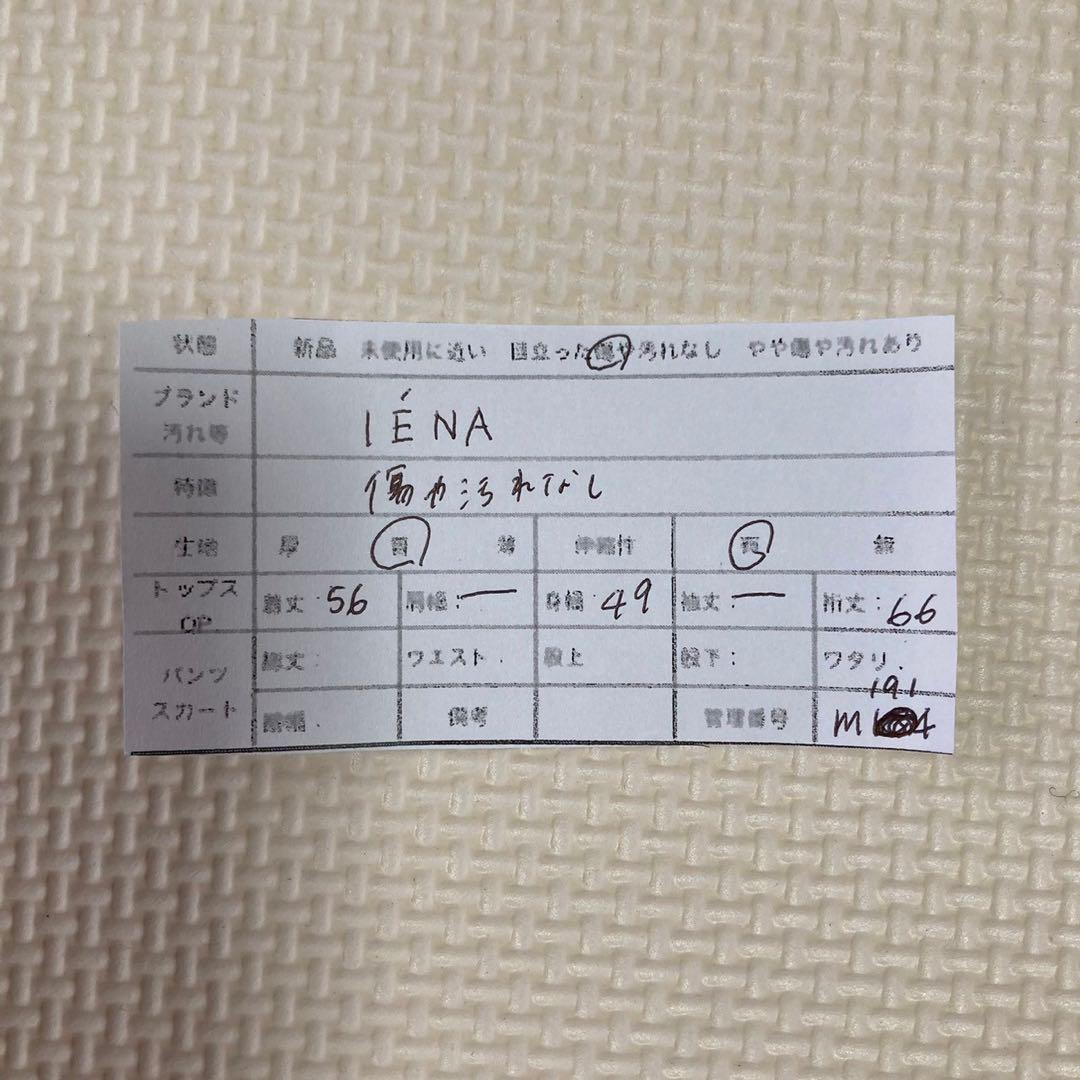 状態 新品 未使用に近い 目立った傷や汚れなし やや傷や汚れあり
ブランド IÉNA
汚れ等
特徴 傷や汚れなし
生地 厚 普 薄 伸縮性 有 無
トップス OP 着丈:56 肩幅:― 身幅:49 袖丈:― 裄丈:66
パンツ 総丈: ウエスト: 股上 股下: ワタリ:
191
スカート 備考 管理番号 M